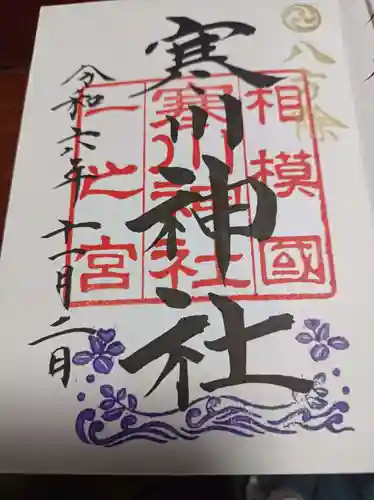 八方除
寒川神社
相模國
寒川神社
一之宮
令和六年十一月二日